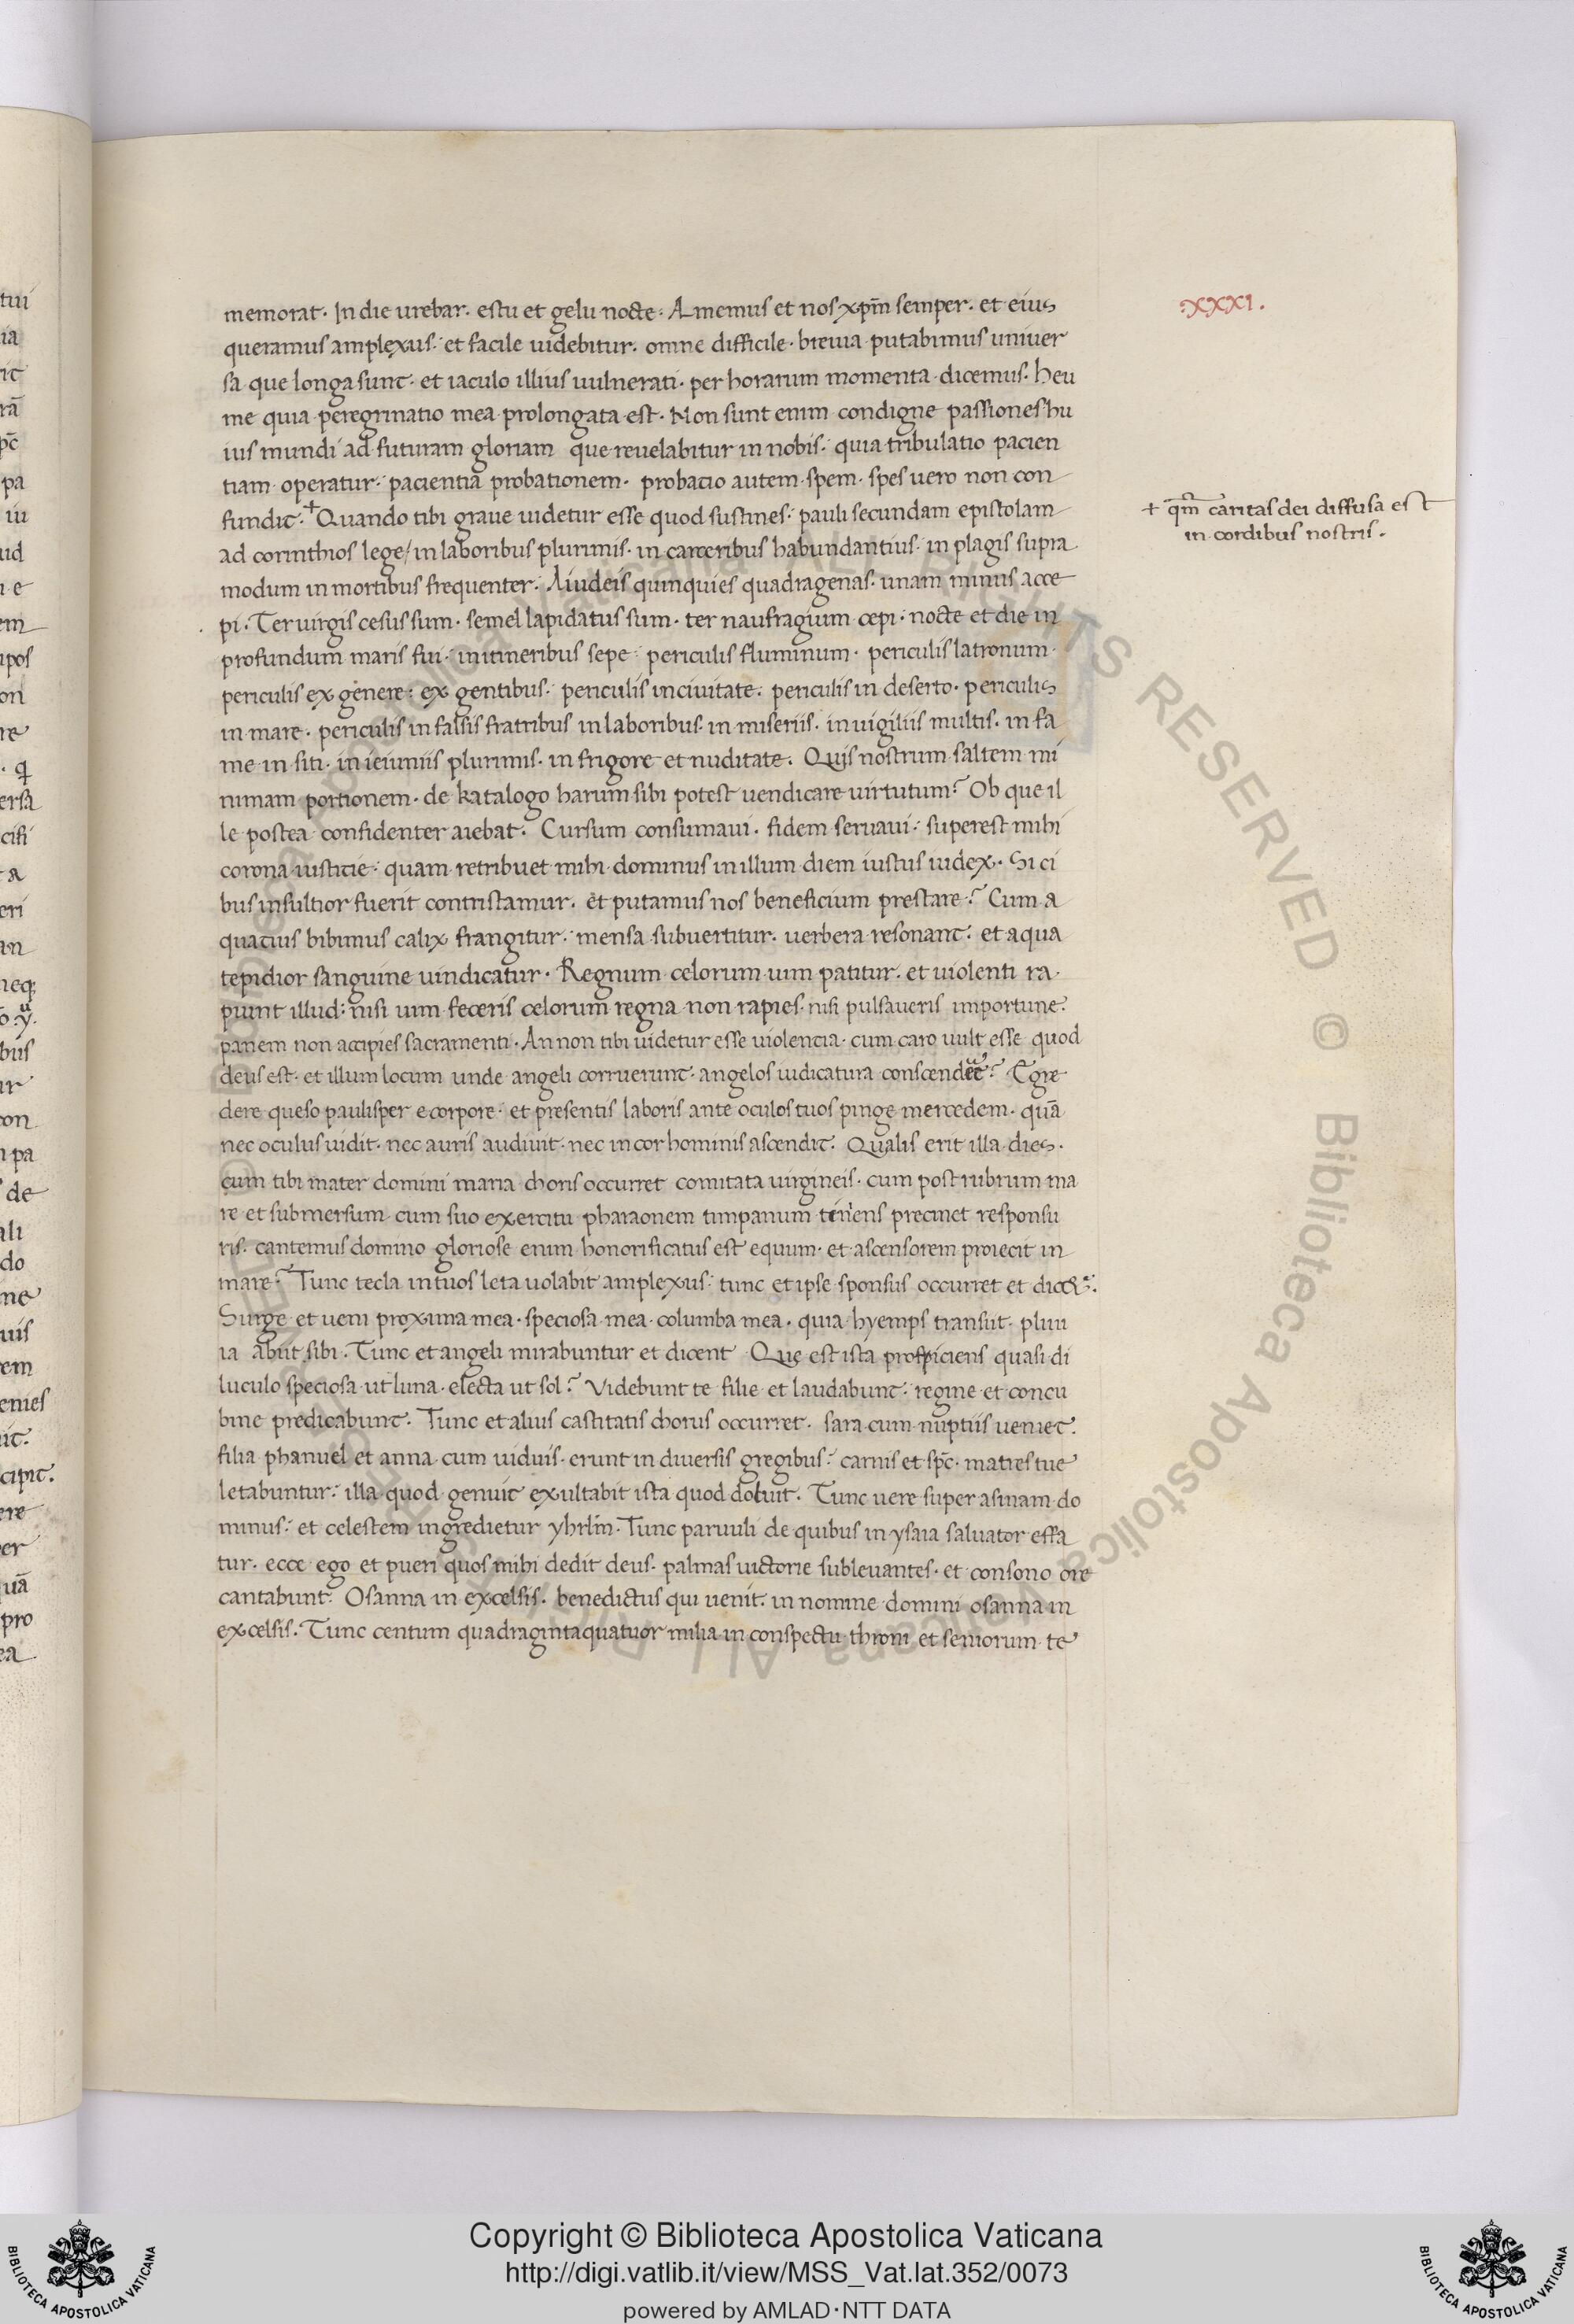 memorat. In die urebar. estu et gelu nocte. Amemus et nos xp̄m semper. et eius
.XXXI.
queramus amplexus. et facile uidebitur. omne difficile. breuia putabimus uniuer
sa que longa sunt. et iaculo illius uulnerati. per horarum momenta dicemus. heu
me quia peregrinatio mea prolongata est. Non sunt enim condigne passiones hu
ius mundi ad futuram gloriam que reuelabitur in nobis. quia tribulatio pacien
tiam operatur. pacientia probationem. probacio autem spem. spes uero non con
fundit.+ Quando tibi graue uidetur esse quod sustines. pauli secundam epistolam
+ qm̄ caritas dei diffusa est
in cordibus nostris.
ad corinthios lege/ in laboribus plurimis. in carceribus habundantius. in plagis supra
modum in mortibus frequenter. A iudeis quinquies quadragenas. unam minus acce
pi. Ter uirgis cesus sum. semel lapidatus sum. ter naufragium cepi. nocte et die in
profundum maris fui. in itineribus sepe. periculis fluminum. periculis latronum.
periculis ex genere. ex gentibus. periculis in ciuitate. periculis in deserto. periculis
in mare. periculis in falsis fratribus in laboribus. in miseriis. in uigiliis multis. in fa
me in siti. in ieiuniis plurimis. in frigore et nuditate. Quis nostrum saltem mi
nimam portionem. de katalogo harum sibi potest uendicare uirtutum? Ob que il
le postea confidenter aiebat. Cursum consumaui. fidem seruaui. superest mihi
corona iusticie. quam retribuet mihi dominus in illum diem iustus iudex. Si ci
bus insulsior fuerit contristamur. et putamus nos beneficium prestare? Cum a
quatius bibimus calix frangitur. mensa subuertitur. uerbera resonant. et aqua
tepidior sanguine uindicatur. Regnum celorum uim patitur. et uiolenti ra
piunt illud. nisi uim feceris celorum regna non rapies. nisi pulsaueris importune.
panem non accipies sacramenti. An non tibi uidetur esse uiolencia. cum caro uult esse quod
deus est. et illum locum unde angeli corruerunt. angelos iudicatura conscendet? Egre
dere queso paulisper e corpore. et presentis laboris ante oculos tuos pinge mercedem. quā
nec oculus uidit. nec auris audiuit. nec in cor hominis ascendit. Qualis erit illa dies.
cum tibi mater domini maria choris occurret comitata uirgineis. cum post rubrum ma
re et submersum cum suo exercitu pharaonem timpanum tenens precinet responsu
ris. cantemus domino gloriose enim honorificatus est equum. et ascensorem proiecit in
mare? Tunc tecla in tuos leta uolabit amplexus. tunc et ipse sponsus occurret et dicet.
Surge et ueni proxima mea. speciosa mea columba mea. quia hyemps transiit. pluu
ia abiit sibi. Tunc et angeli mirabuntur et dicent Que est ista prospiciens quasi di
luculo speciosa ut luna. electa ut sol? Videbunt te filie et laudabunt. regine et concu
bine predicabunt. Tunc et alius castitatis chorus occurret. sara cum nuptiis ueniet.
filia phanuel et anna cum uiduis. erunt in diuersis gregibus. carnis et sp̄c. matres tue
letabuntur. illa quod genuit exultabit ista quod docuit. Tunc uere super asinam do
minus. et celestem ingredietur yhrl̄m. Tunc paruuli de quibus in ysaia saluator effa
tur. ecce ego et pueri quos mihi dedit deus. palmas uictorie subleuantes. et consono ore
cantabunt. Osanna in excelsis. benedictus qui uenit. in nomine domini osanna in
excelsis. Tunc centum quadragintaquatuor milia in conspectu throni et seniorum te
Copyright © Biblioteca Apostolica Vaticana
http://digi.vatlib.it/view/MSS_Vat.lat.352/0073
powered by AMLAD·NTT DATA
BIBLIOTECA APOSTOLICA VATICANA
BIBLIOTECA APOSTOLICA VATICANA